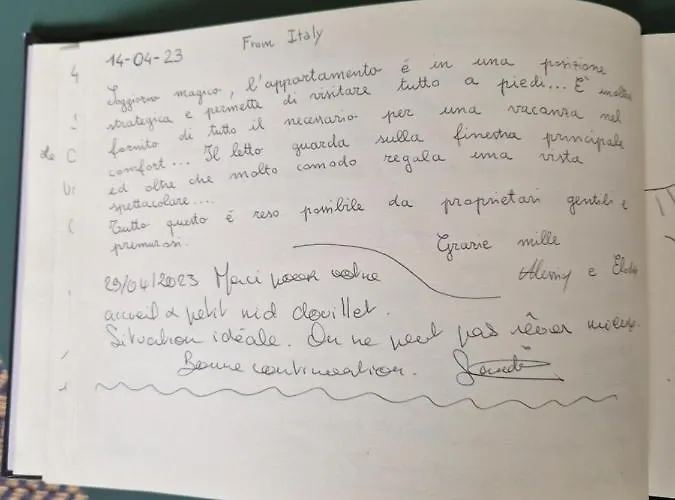 14-04-23 From Italy
Soggiorno magico, l'appartamento é in una posizione
strategica e permette di visitare tutto a piedi... E' inoltre
fornito di tutto il necessario per una vacanza nel
comfort... Il letto guarda sulla finestra principale
ed oltre che molto comodo regala una vista
spettacolare...
Tutto questo é reso possibile da proprietari gentili e
premurosi.
Grazie mille
e
29/04/2023 Merci pour votre
accueil & petit nid douillet.
Situation idéale. On ne peut pas rêver mieux.
Bonne continuation.